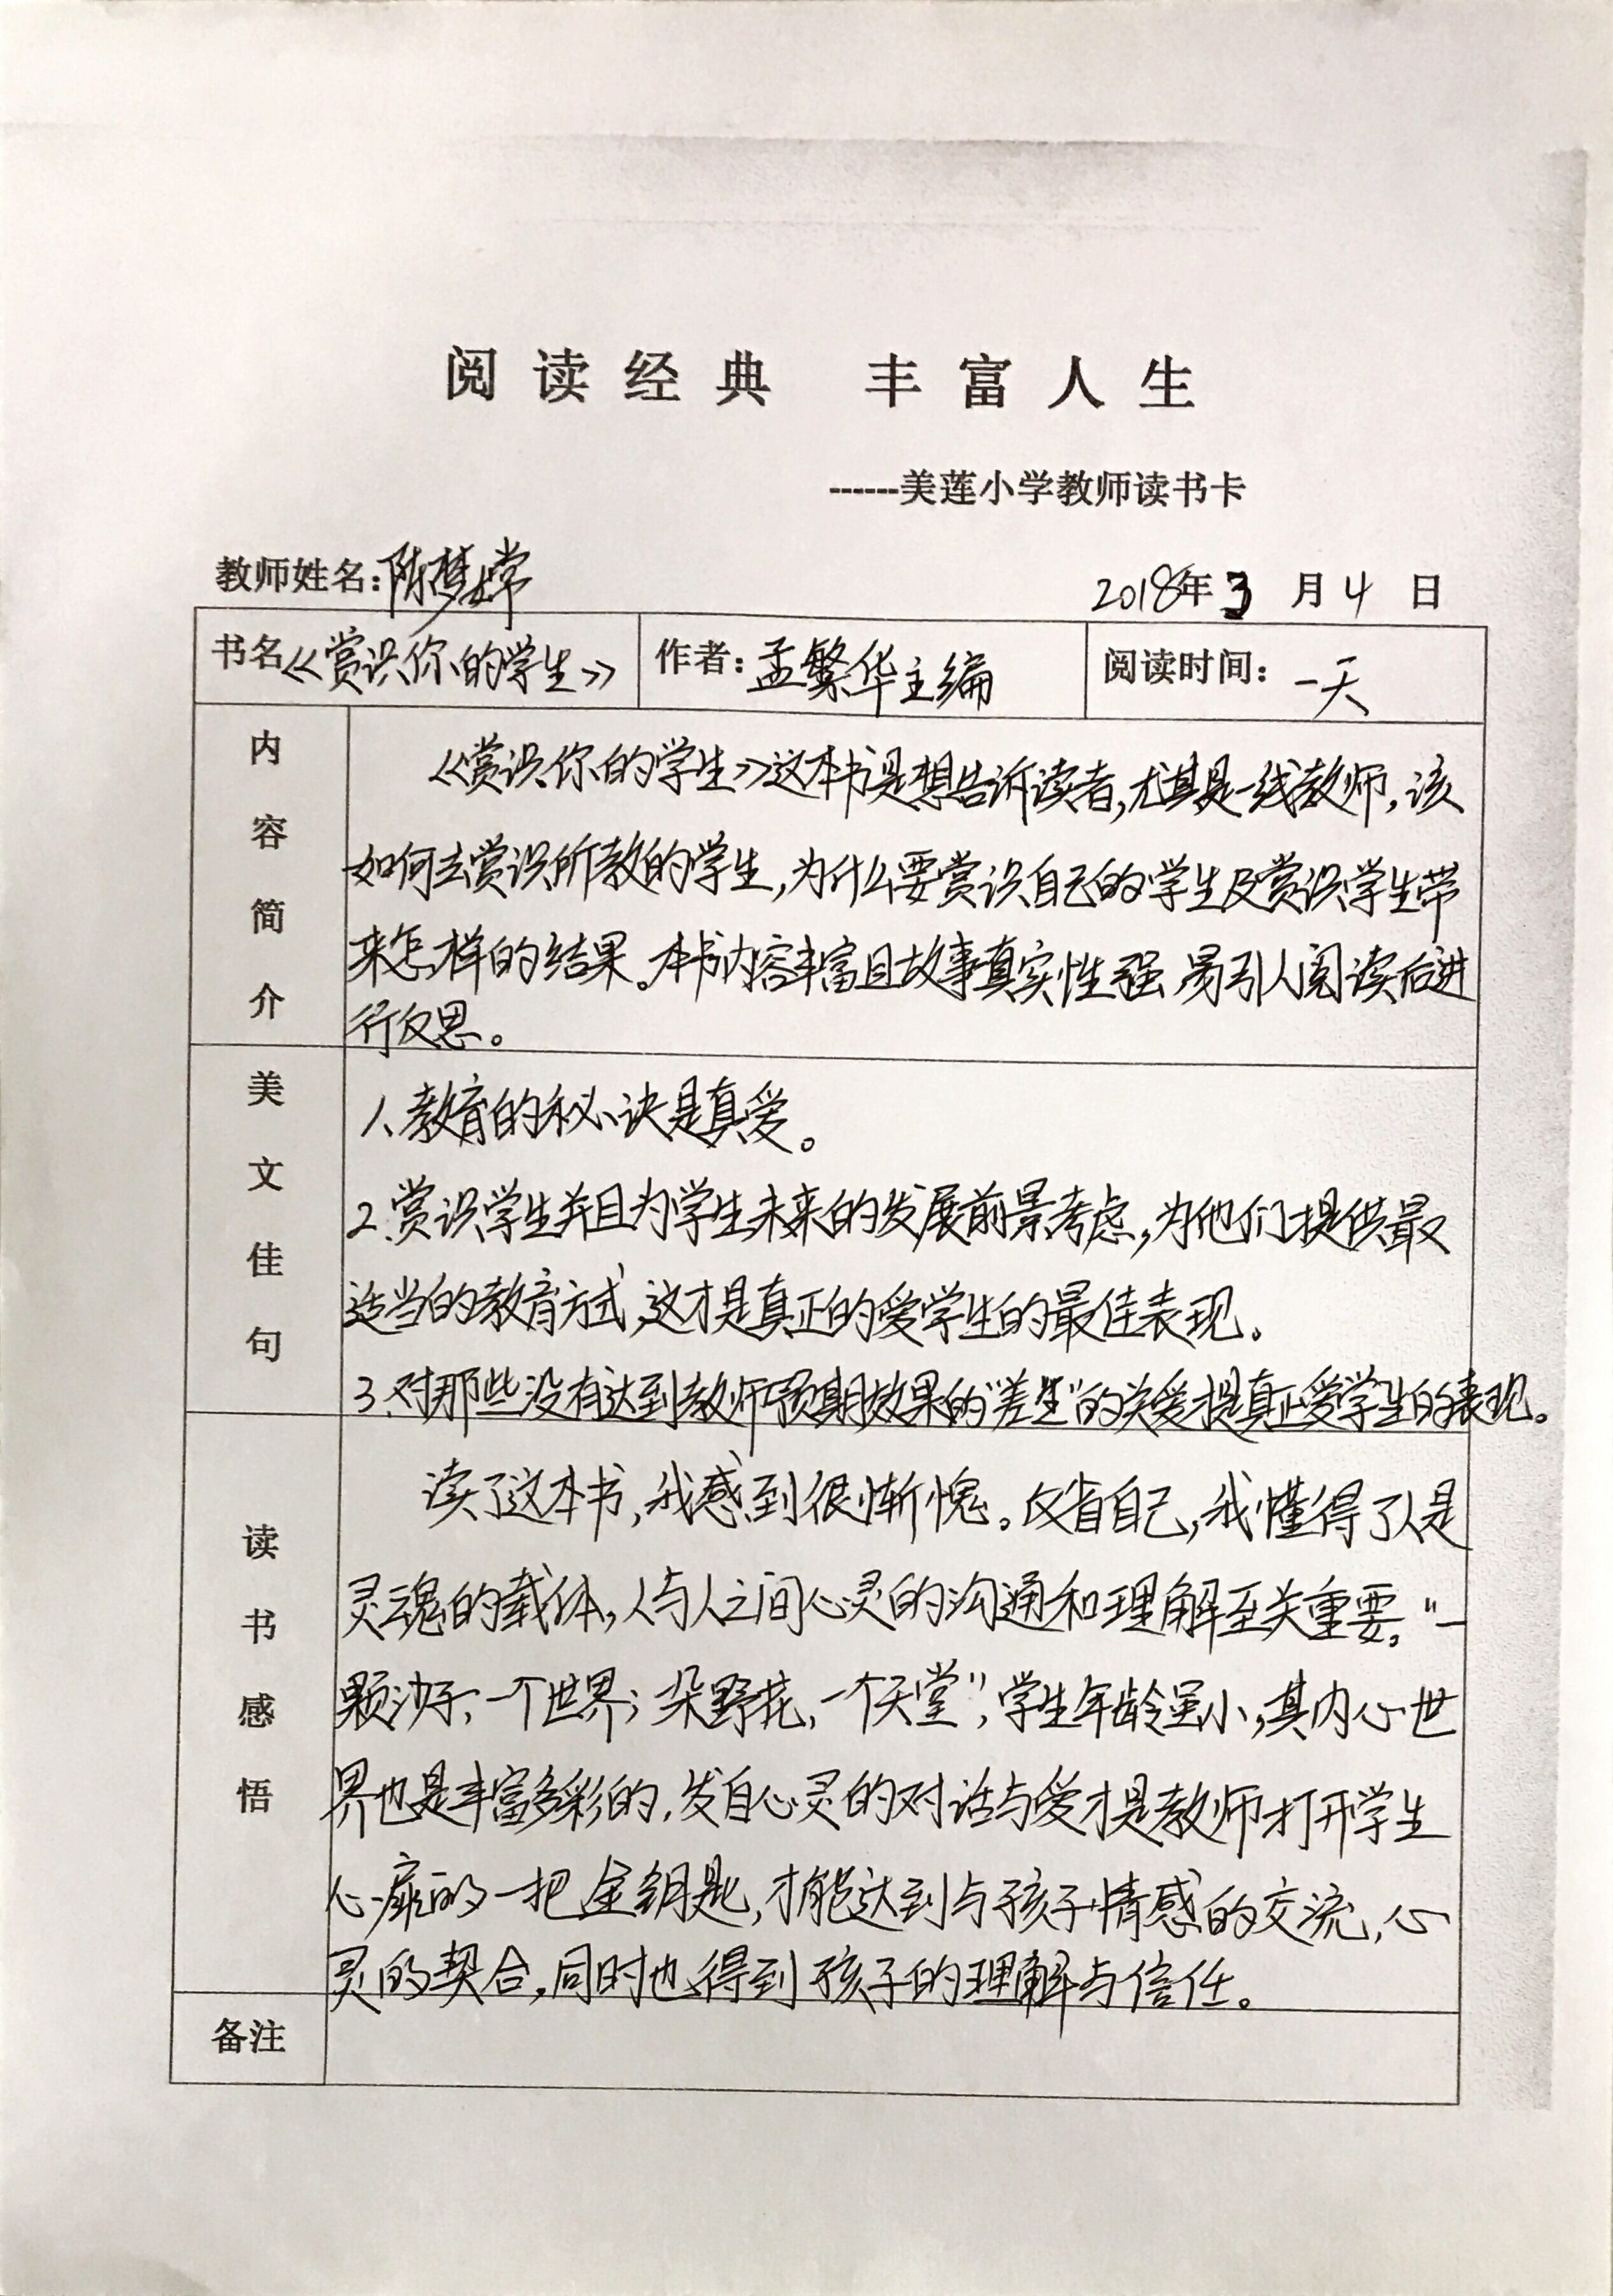 阅读经典 丰富人生
------美莲小学教师读书卡
教师姓名：陈梦嫦
2018年3月4日
书名《赏识你的学生》 作者：孟繁华主编 阅读时间：一天
内容简介
《赏识你的学生》这本书是想告诉读者,尤其是一线教师,该
如何去赏识所教的学生,为什么要赏识自己的学生及赏识学生带
来怎样的结果。本书内容丰富且故事真实性强,易引人阅读后进
行反思。
美文佳句
1、教育的秘诀是真爱。
2、赏识学生并且为学生未来的发展前景考虑,为他们提供最
适当的教育方式,这才是真正的爱学生的最佳表现。
3、对那些没有达到教师预期效果的“差生”的关爱才是真正爱学生的表现。
读书感悟
读了这本书,我感到很惭愧。反省自己,我懂得了人是
灵魂的载体,人与人之间心灵的沟通和理解至关重要。“一
颗沙子,一个世界;一朵野花,一个天堂”,学生年龄虽小,其内心世
界也是丰富多彩的,发自心灵的对话与爱才是教师打开学生
心扉的一把金钥匙,才能达到与孩子情感的交流,心
灵的契合,同时也得到孩子的理解与信任。
备注